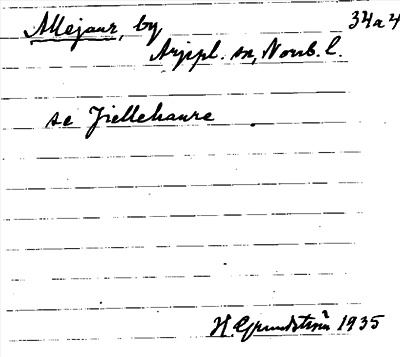 Allejaur, by 34a4
Arjepl. sn, Norrb. l.
se Jiellehaure
H. Grundström 1935